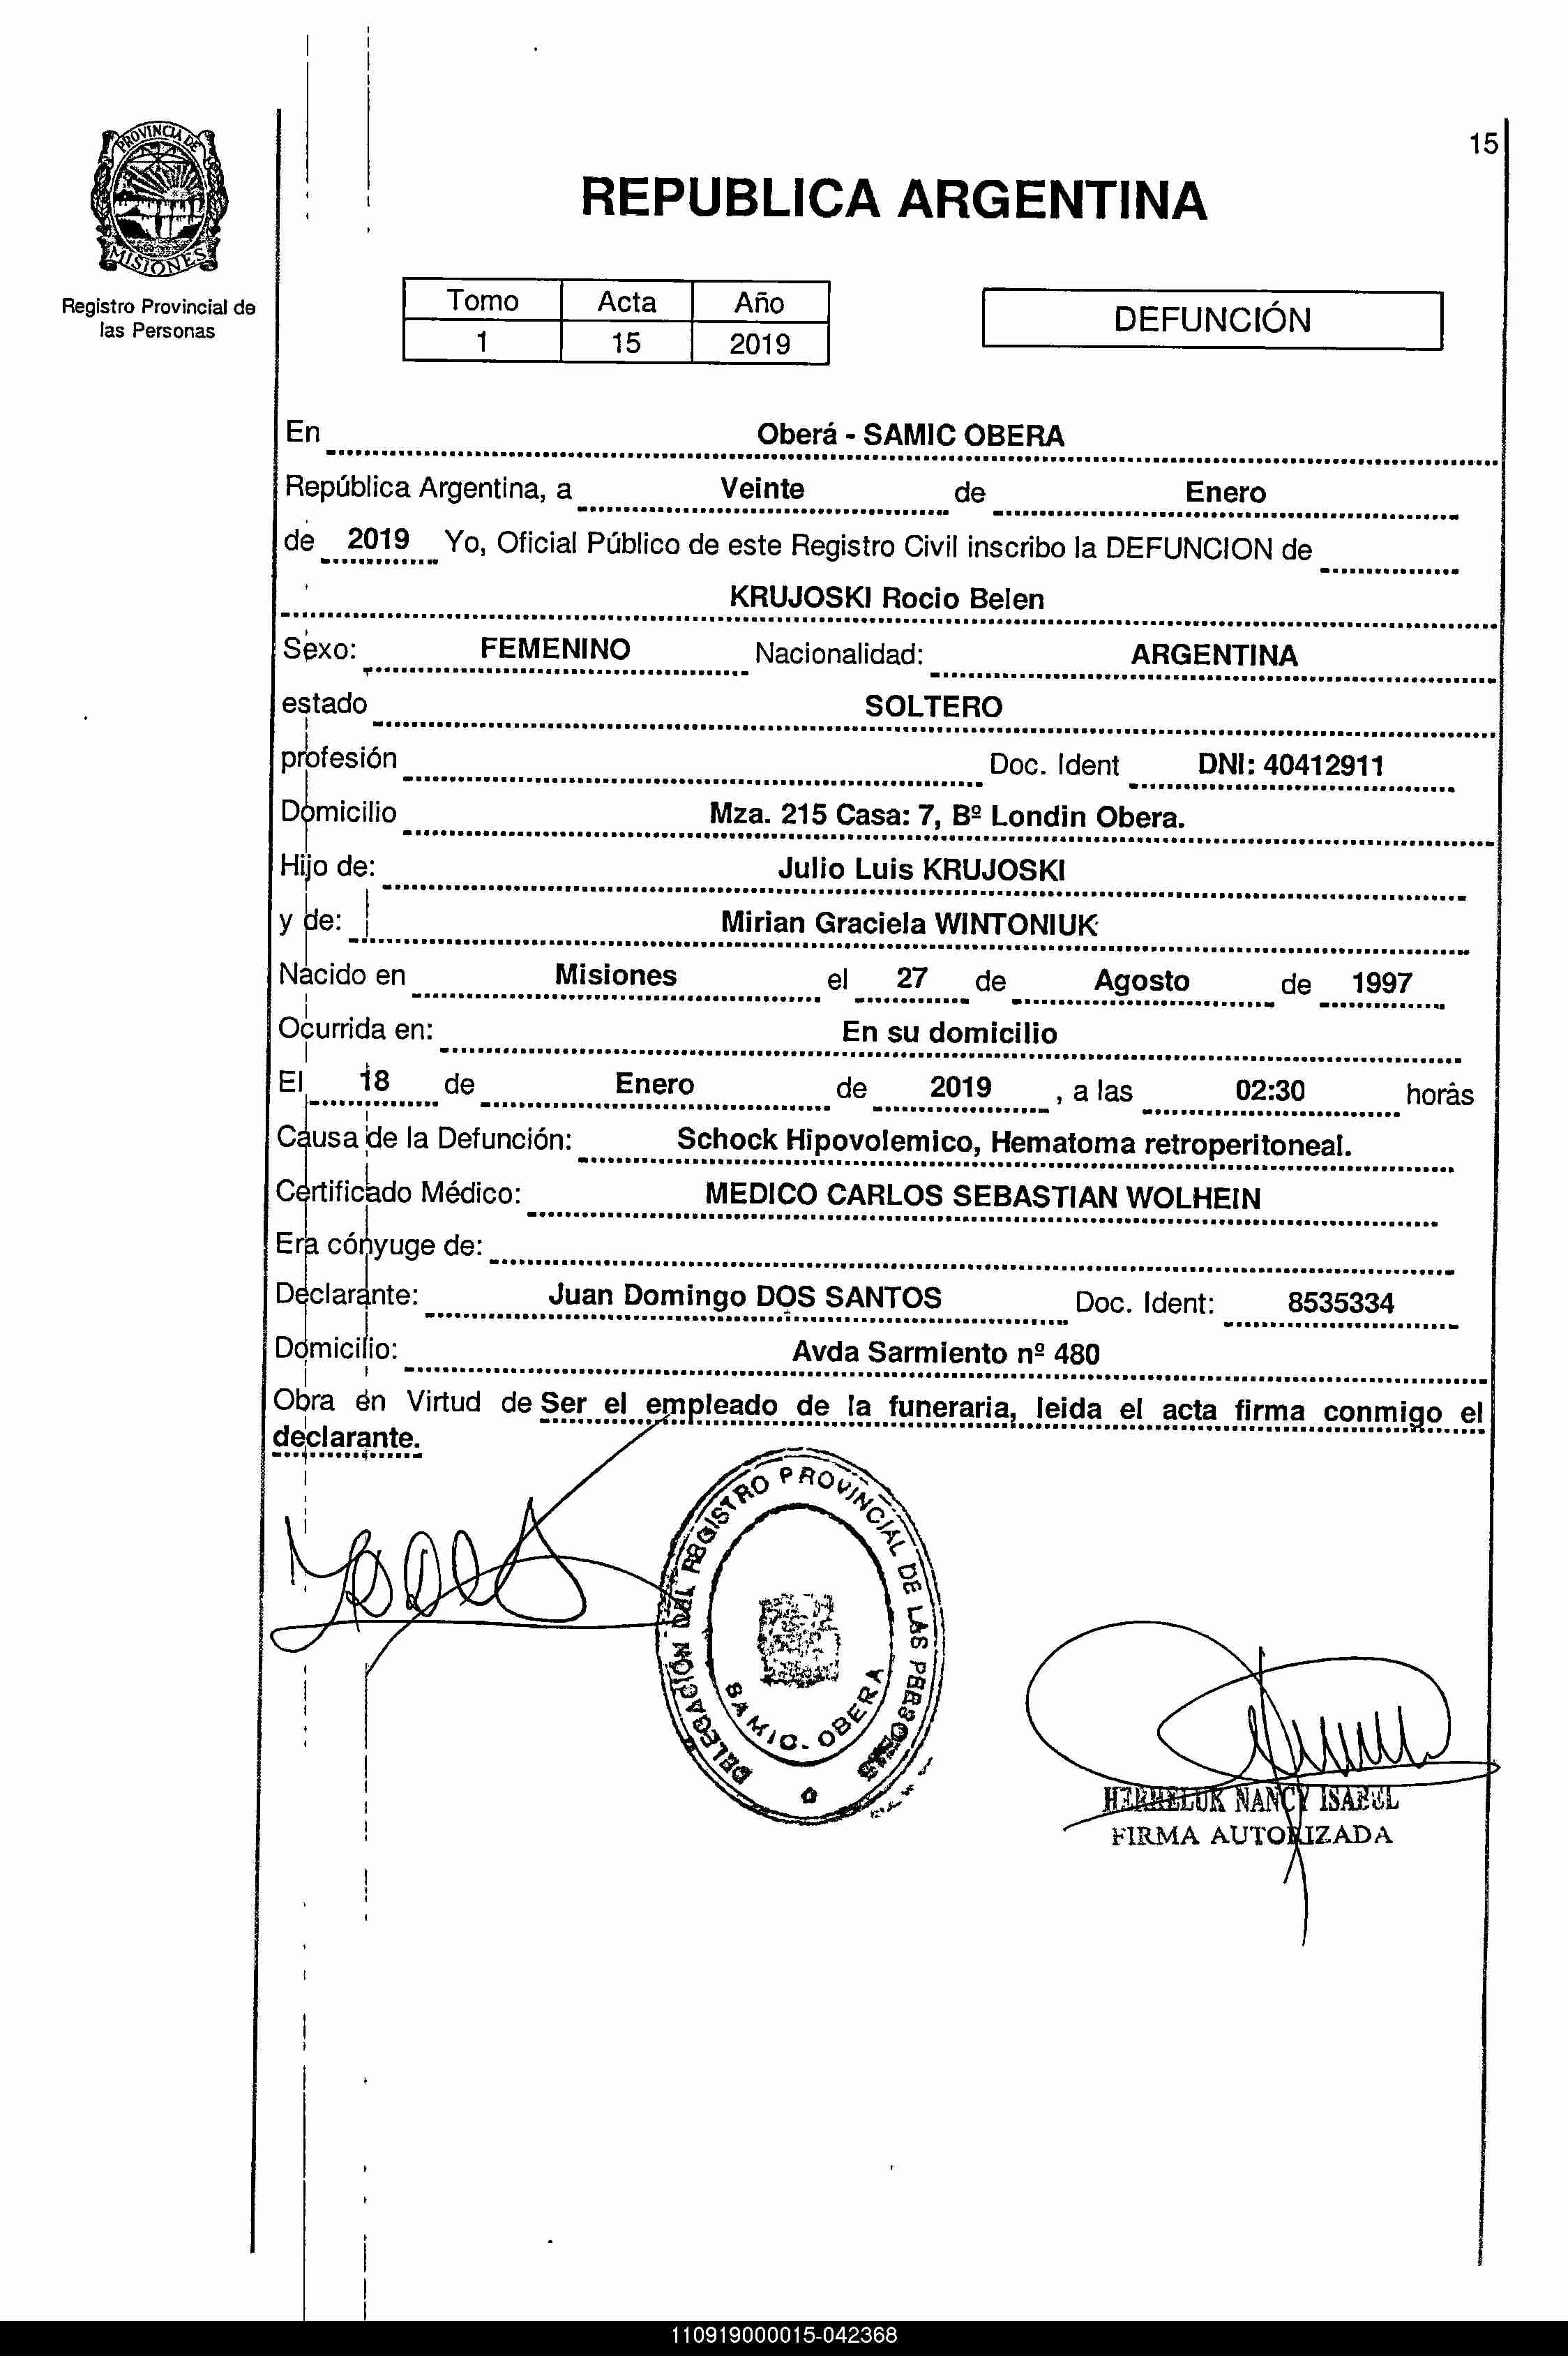 15
PROVINCIA DE
MISIONES
Registro Provincial de
las Personas
REPUBLICA ARGENTINA
Tomo Acta Año
1 15 2019
DEFUNCIÓN
En Oberá - SAMIC OBERA
República Argentina, a Veinte de Enero
de 2019 Yo, Oficial Público de este Registro Civil inscribo la DEFUNCION de
KRUJOSKI Rocio Belen
Sexo: FEMENINO Nacionalidad: ARGENTINA
estado SOLTERO
profesión Doc. Ident DNI: 40412911
Domicilio Mza. 215 Casa: 7, Bº Londin Obera.
Hijo de: Julio Luis KRUJOSKI
y de: Mirian Graciela WINTONIUK
Nacido en Misiones el 27 de Agosto de 1997
Ocurrida en: En su domicilio
El 18 de Enero de 2019 , a las 02:30 horas
Causa de la Defunción: Schock Hipovolemico, Hematoma retroperitoneal.
Certificado Médico: MEDICO CARLOS SEBASTIAN WOLHEIN
Era cónyuge de:
Declarante: Juan Domingo DOS SANTOS Doc. Ident: 8535334
Domicilio: Avda Sarmiento nº 480
Obra en Virtud de Ser el empleado de la funeraria, leida el acta firma conmigo el
declarante.
DELEGACIÓN DEL REGISTRO PROVINCIAL DE LAS PERSONAS
SAMIC. OBERA
NANCY ISABEL
FIRMA AUTORIZADA
110919000015-042368